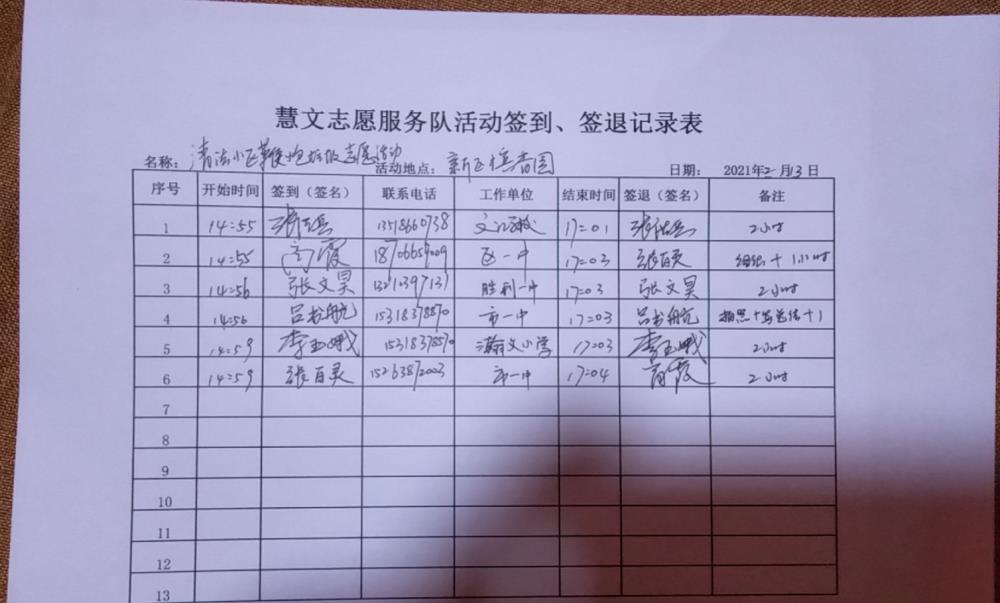 慧文志愿服务队活动签到、签退记录表
名称：清洁小区鞭炮垃圾志愿活动 活动地点：新区檀香园 日期：2021年2月13日
序号 开始时间 签到（签名） 联系电话 工作单位 结束时间 签退（签名） 备注
1 14:55 13518660738 17:01 2小时
2 14:55 高霞 18706659009 区一中 17:03 张百灵 组织+1小时
3 14:56 张文昊 13210397131 胜利一中 17:03 张文昊 2小时
4 14:56 吕龙航 15318378870 市一中 17:03 吕龙航 拍照+写总结+1
5 14:59 李玉娥 15318378570 瀚文小学 17:03 李玉娥 2小时
6 14:59 张百灵 15263872003 市一中 17:04 高霞 2小时
7
8
9
10
11
12
13